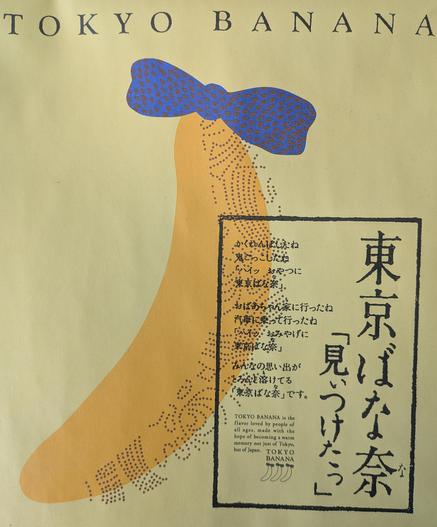 TOKYO BANANA
東京ばな奈
な
「見ぃつけたっ」
かくれんぼしたね
鬼ごっこしたね
「ハイッ おやつに
東京ばな奈」
おばあちゃん家に行ったね
汽車に乗って行ったね
「ハイッ おみやげに
東京ばな奈」
みんなの思い出が
とろんと溶けてる
「東京ばな奈」です。
TOKYO BANANA is the
flavor loved by people of
all ages, made with the
hope of becoming a warm
memory not just of Tokyo,
but of Japan.
TOKYO
BANANA